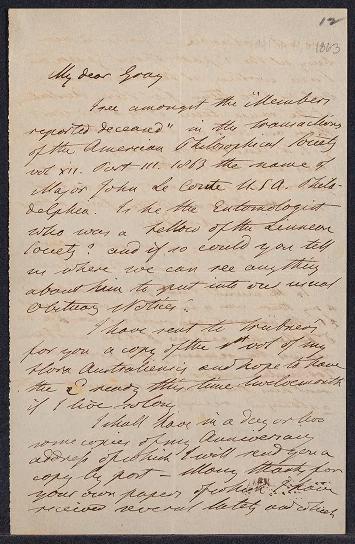 12
1863
My dear Gray
I see amongst the "Members
reported deceased" in the Transactions
of the American Philosophical Society
vol xii. Part III. 1863 the name of
Major John Le Conte U.S.A. Phila-
delphia. Is he the Entomologist
who was a Fellow of the Linnean
Society? and if so could you tell
us where we can see anything
about him to put into our usual
Obituary Notices?
I have sent to Trubners
for you a copy of the 1st vol of my
Flora Australiensis and hope to have
the 2d ready this time twelvemonth
if I live so long
I shall have in a day or two
some copies of my Anniversary
address of which I will send you a
copy by post – Many thanks for
your own papers of which I have
received several lately and which